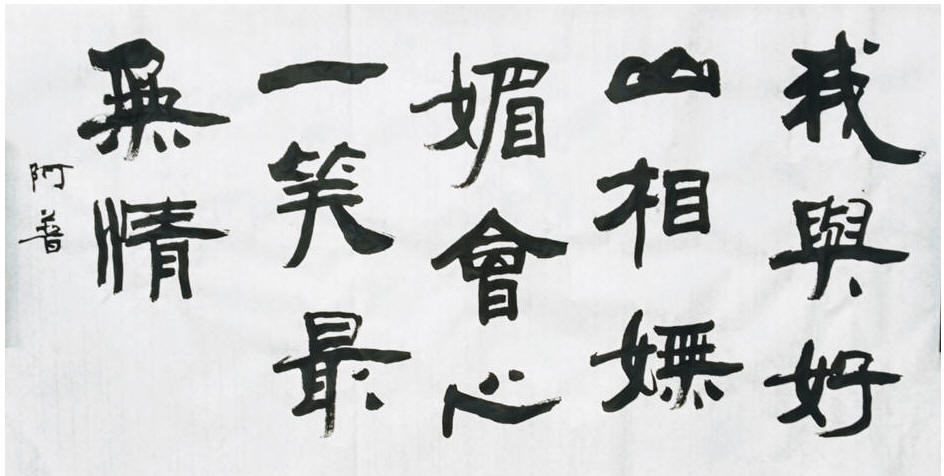 我與好
山相嫵
媚會心
一笑最
無情
阿普